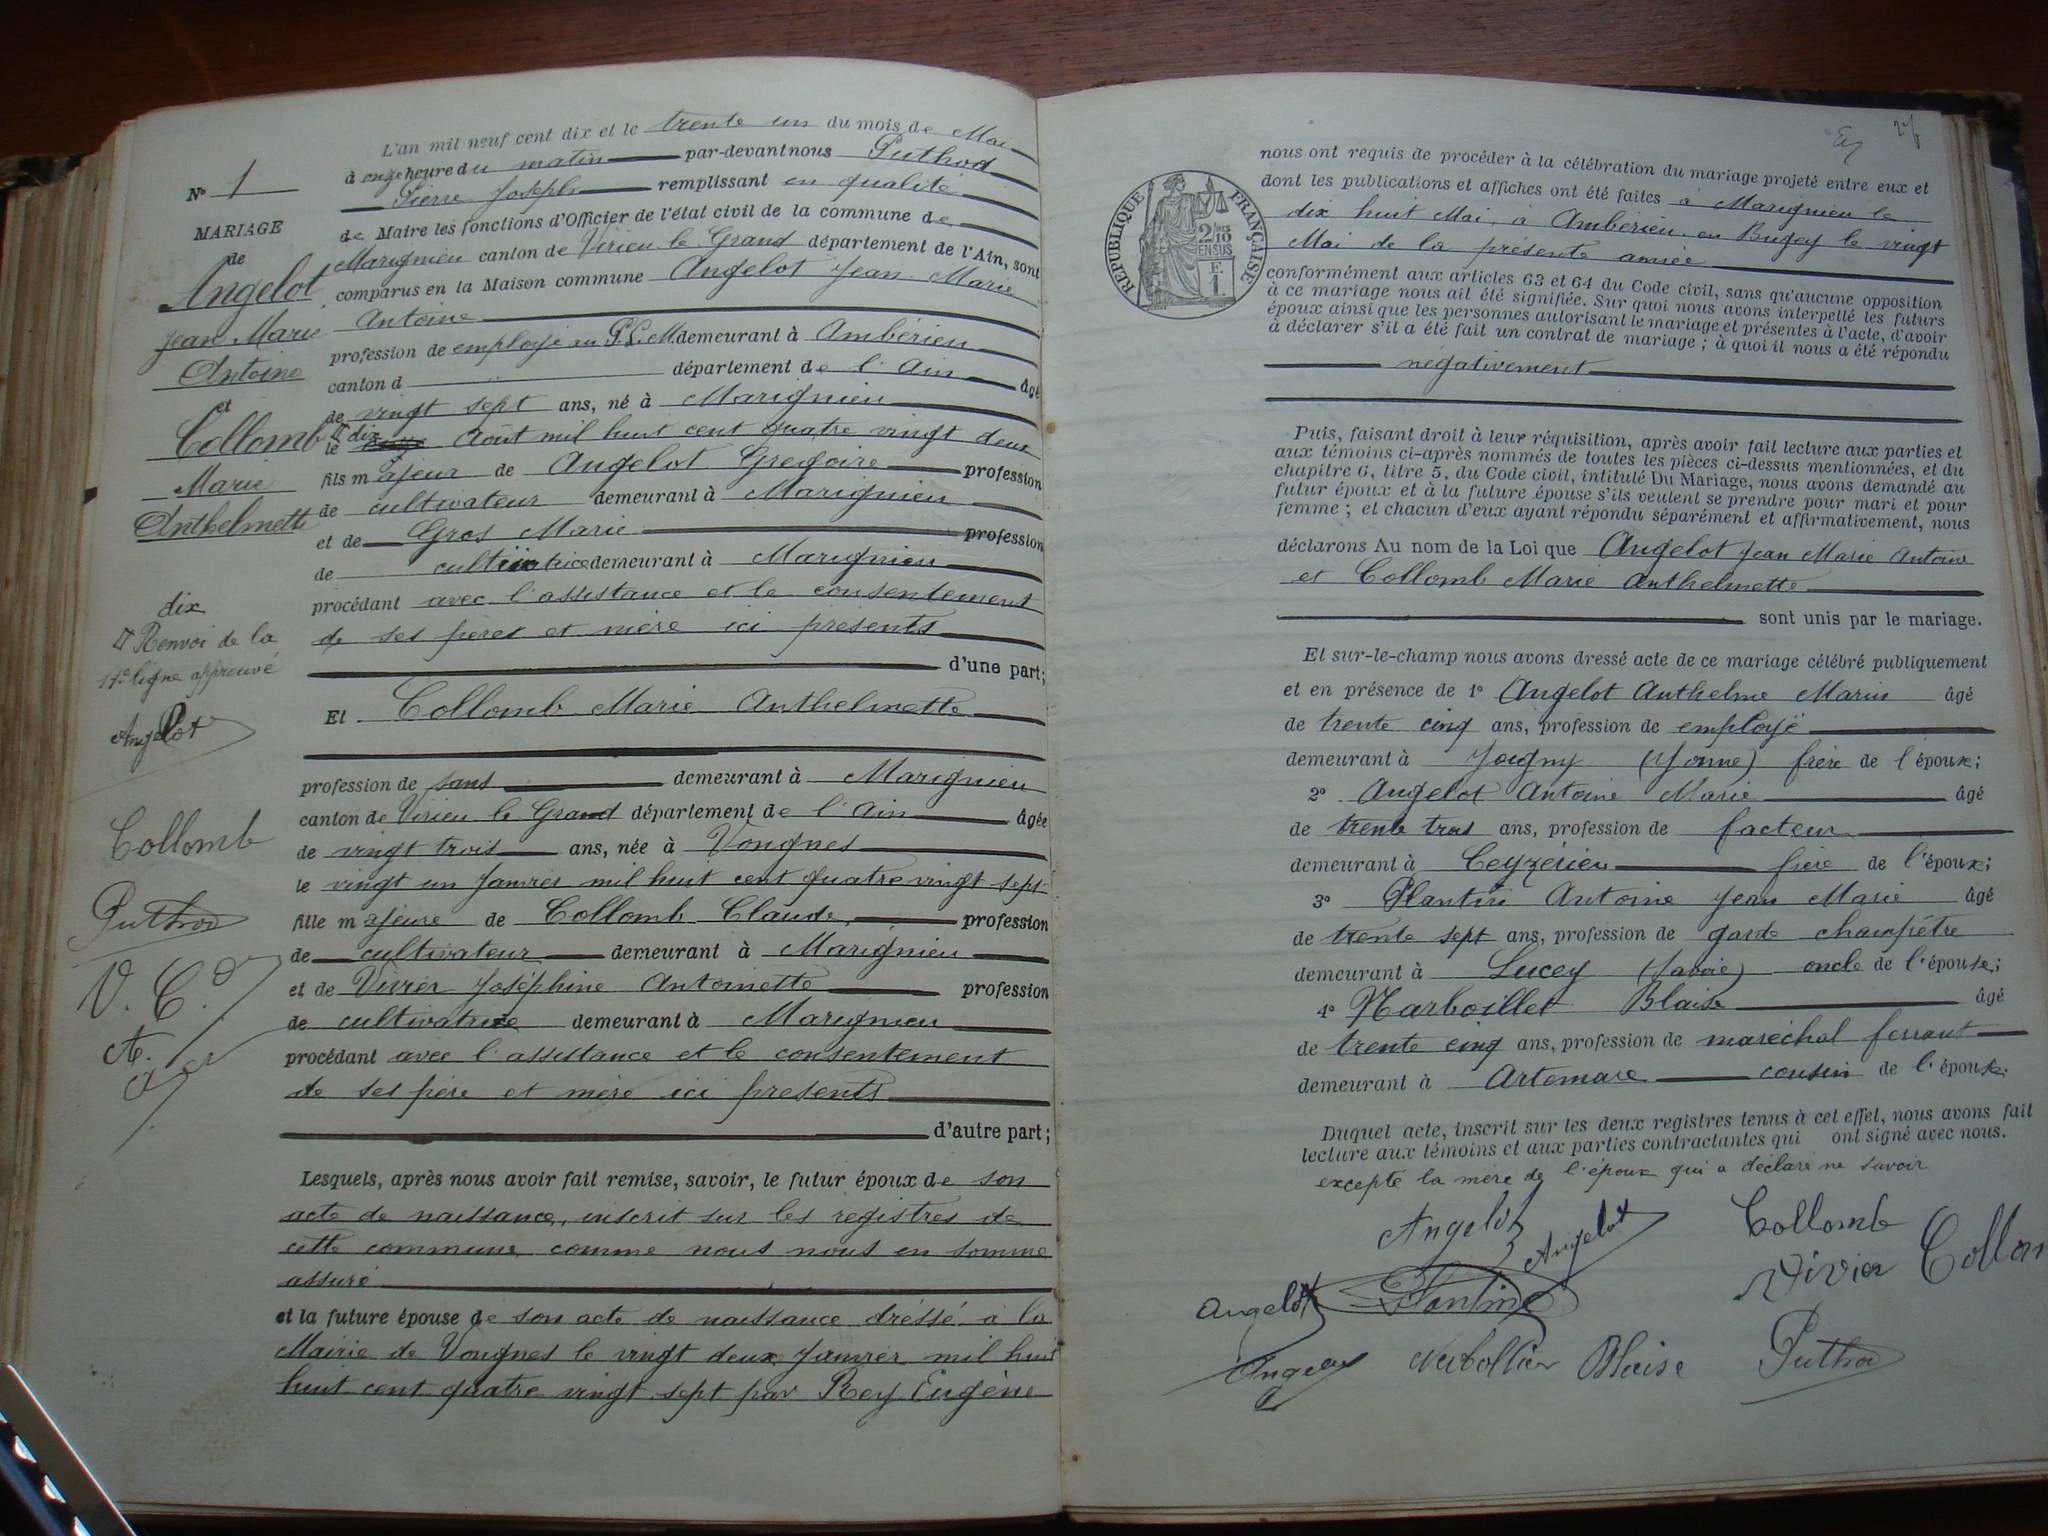 L'an mil neuf cent dix et le trente un du mois de Mai
à onze heure du matin par-devant nous Puthod
Pierre Joseph remplissant en qualité
de Maire les fonctions d'Officier de l'état civil de la commune de
Marignieu canton de Virieu le Grand département de l'Ain, sont
comparus en la Maison commune Angelot Jean Marie
Antoine
profession de employé au P.L.M. demeurant à Ambérieu
canton d département de l'Ain âgé
de vingt sept ans, né à Marignieu
le dix Août mil huit cent quatre vingt deux
fils majeur de Angelot Gregoire profession
de cultivateur demeurant à Marignieu
et de Gros Marie profession
de cultivatrice demeurant à Marignieu
procédant avec l'assistance et le consentement
de ses pères et mère ici présents
d'une part;
Et Collomb Marie Anthelmette
profession de sans demeurant à Marignieu
canton de Virieu le Grand département de l'Ain âgée
de vingt trois ans, née à Vongnes
le vingt un Janvier mil huit cent quatre vingt sept
fille majeure de Collomb Claude, profession
de cultivateur demeurant à Marignieu
et de Vivier Joséphine Antoinette profession
de cultivatrice demeurant à Marignieu
procédant avec l'assistance et le consentement
de ses père et mère ici présents
d'autre part;
Lesquels, après nous avoir fait remise, savoir, le futur époux de son
acte de naissance, inscrit sur les registres de
cette commune comme nous nous en somme
assuré
et la future épouse de son acte de naissance dréssé à la
Mairie de Vongnes le vingt deux Janvier mil huit
huit cent quatre vingt sept par Rey Eugène
N° 1
MARIAGE
de
Angelot
Jean Marie
Antoine
et
Collomb
Marie
Anthelmette
dix
Renvoi de la
11e ligne approuvé
Angelot
Collomb
Puthod
V. C.
A.
nous ont requis de procéder à la célébration du mariage projeté entre eux et
dont les publications et affiches ont été faites à Marignieu le
dix huit Mai, à Ambérieu en Bugey le vingt
Mai de la présente année
conformément aux articles 63 et 64 du Code civil, sans qu'aucune opposition
à ce mariage nous ait été signifiée. Sur quoi nous avons interpellé les futurs
époux ainsi que les personnes autorisant le mariage et présentes à l'acte, d'avoir
à déclarer s'il a été fait un contrat de mariage; à quoi il nous a été répondu
négativement
RÉPUBLIQUE FRANÇAISE
2/10
EN SUS
F.
1.
Puis, faisant droit à leur réquisition, après avoir fait lecture aux parties et
aux témoins ci-après nommés de toutes les pièces ci-dessus mentionnées, et du
chapitre 6, titre 5, du Code civil, intitulé Du Mariage, nous avons demandé au
futur époux et à la future épouse s'ils veulent se prendre pour mari et pour
femme; et chacun d'eux ayant répondu séparément et affirmativement, nous
déclarons Au nom de la Loi que Angelot Jean Marie Antoine
et Collomb Marie Anthelmette
sont unis par le mariage.
Et sur-le-champ nous avons dressé acte de ce mariage célébré publiquement
et en présence de 1° Angelot Anthelme Marin âgé
de trente cinq ans, profession de employé
demeurant à Joigny (Yonne) frère de l'époux;
2° Angelot Antoine Marie âgé
de trente trois ans, profession de facteur
demeurant à Ceyzérieu frère de l'époux;
3° Plantin Antoine Jean Marie âgé
de trente sept ans, profession de garde champêtre
demeurant à Lucey (Savoie) oncle de l'épouse;
4° Narboillet Blaise âgé
de trente cinq ans, profession de maréchal ferrant
demeurant à Artemare cousin de l'époux.
Duquel acte, inscrit sur les deux registres tenus à cet effet, nous avons fait
lecture aux témoins et aux parties contractantes qui ont signé avec nous.
excepte la mère de l'époux qui a déclaré ne savoir
Angelot Angelot Collomb
Vivier Collom
Angelot Plantin
Blaise Puthod